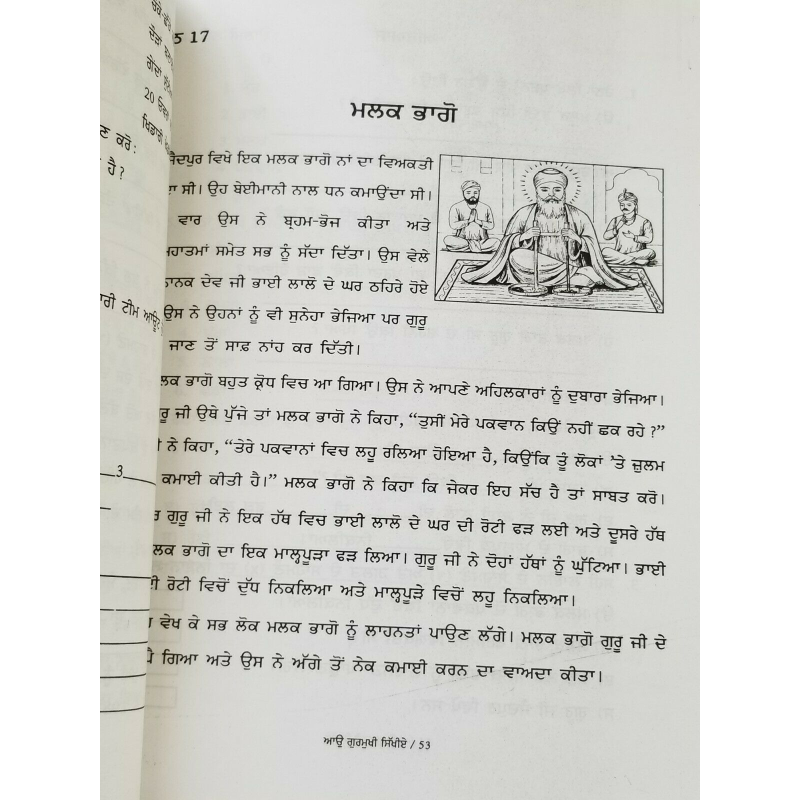 ਠ 17
20
ਖਿਡਾਰੀ
ਣ ਕਰੋ :
ਹੈ ?
ਾਰੀ ਟੀਮ ਆਊਟ
3
ਮਲਕ ਭਾਗੋ
ਸੈਦਪੁਰ ਵਿਖੇ ਇਕ ਮਲਕ ਭਾਗੋ ਨਾਂ ਦਾ ਵਿਅਕਤੀ
ਦਾ ਸੀ। ਉਹ ਬੇਈਮਾਨੀ ਨਾਲ ਧਨ ਕਮਾਉਂਦਾ ਸੀ।
ਵਾਰ ਉਸ ਨੇ ਬ੍ਰਹਮ-ਭੋਜ ਕੀਤਾ ਅਤੇ
ਮਹਾਤਮਾਂ ਸਮੇਤ ਸਭ ਨੂੰ ਸੱਦਾ ਦਿੱਤਾ। ਉਸ ਵੇਲੇ
ਨਾਨਕ ਦੇਵ ਜੀ ਭਾਈ ਲਾਲੋ ਦੇ ਘਰ ਠਹਿਰੇ ਹੋਏ
ਉਸ ਨੇ ਉਹਨਾਂ ਨੂੰ ਵੀ ਸੁਨੇਹਾ ਭੇਜਿਆ ਪਰ ਗੁਰੂ
ਜਾਣ ਤੋਂ ਸਾਫ਼ ਨਾਂਹ ਕਰ ਦਿੱਤੀ।
ਲਕ ਭਾਗੋ ਬਹੁਤ ਕ੍ਰੋਧ ਵਿਚ ਆ ਗਿਆ। ਉਸ ਨੇ ਆਪਣੇ ਅਹਿਲਕਾਰਾਂ ਨੂੰ ਦੁਬਾਰਾ ਭੇਜਿਆ।
ਰੂ ਜੀ ਉਥੇ ਪੁੱਜੇ ਤਾਂ ਮਲਕ ਭਾਗੋ ਨੇ ਕਿਹਾ, “ਤੁਸੀਂ ਮੇਰੇ ਪਕਵਾਨ ਕਿਉਂ ਨਹੀਂ ਛਕ ਰਹੇ ?”
ੀ ਨੇ ਕਿਹਾ, “ਤੇਰੇ ਪਕਵਾਨਾਂ ਵਿਚ ਲਹੂ ਰਲਿਆ ਹੋਇਆ ਹੈ, ਕਿਉਂਕਿ ਤੂੰ ਲੋਕਾਂ ’ਤੇ ਜ਼ੁਲਮ
ਕਮਾਈ ਕੀਤੀ ਹੈ।” ਮਲਕ ਭਾਗੋ ਨੇ ਕਿਹਾ ਕਿ ਜੇਕਰ ਇਹ ਸੱਚ ਹੈ ਤਾਂ ਸਾਬਤ ਕਰੋ।
ਗੁਰੂ ਜੀ ਨੇ ਇਕ ਹੱਥ ਵਿਚ ਭਾਈ ਲਾਲੋ ਦੇ ਘਰ ਦੀ ਰੋਟੀ ਫੜ ਲਈ ਅਤੇ ਦੂਸਰੇ ਹੱਥ
ਲਕ ਭਾਗੋ ਦਾ ਇਕ ਮਾਲ੍ਹਪੂੜਾ ਫੜ ਲਿਆ। ਗੁਰੂ ਜੀ ਨੇ ਦੋਹਾਂ ਹੱਥਾਂ ਨੂੰ ਘੁੱਟਿਆ। ਭਾਈ
ੀ ਰੋਟੀ ਵਿਚੋਂ ਦੁੱਧ ਨਿਕਲਿਆ ਅਤੇ ਮਾਲ੍ਹਪੂੜੇ ਵਿਚੋਂ ਲਹੂ ਨਿਕਲਿਆ।
ਵੇਖ ਕੇ ਸਭ ਲੋਕ ਮਲਕ ਭਾਗੋ ਨੂੰ ਲਾਹਨਤਾਂ ਪਾਉਣ ਲੱਗੇ। ਮਲਕ ਭਾਗੋ ਗੁਰੂ ਜੀ ਦੇ
ਪੈ ਗਿਆ ਅਤੇ ਉਸ ਨੇ ਅੱਗੇ ਤੋਂ ਨੇਕ ਕਮਾਈ ਕਰਨ ਦਾ ਵਾਅਦਾ ਕੀਤਾ।
ਆਉ ਗੁਰਮੁਖੀ ਸਿੱਖੀਏ / 53